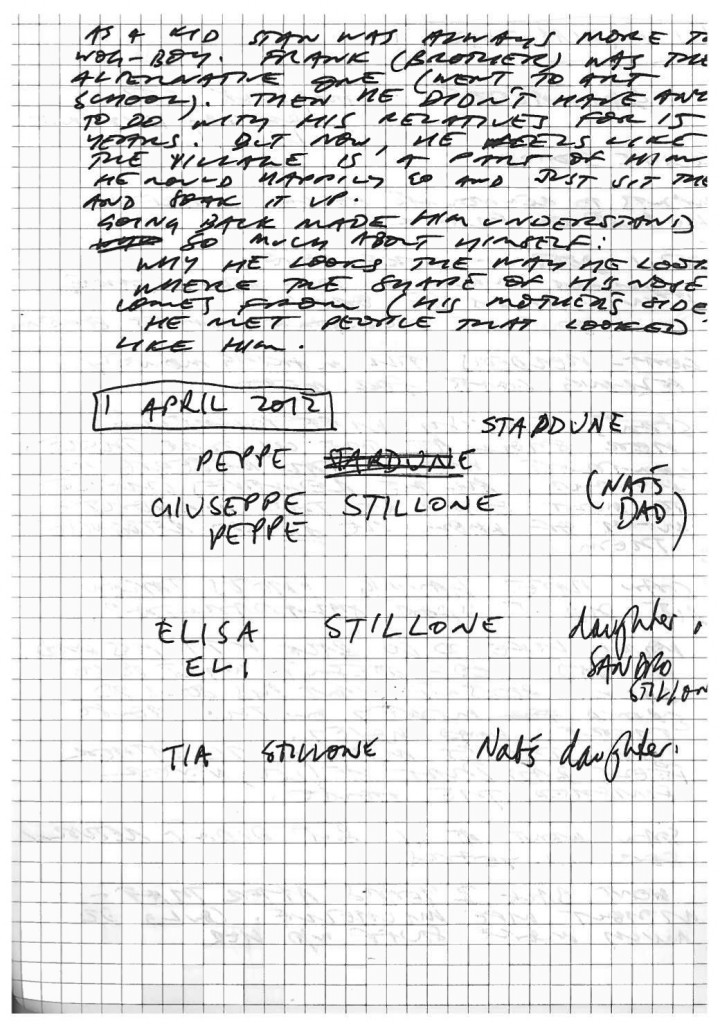 AS A KID STAN WAS ALWAYS MORE T
WOG-BOY. FRANK (BROTHER) WAS THE
ALTERNATIVE ONE (WENT TO ART
SCHOOL). THEN HE DIDN'T HAVE ANY
TO DO WITH HIS RELATIVES FOR 15
YEARS. BUT NOW, HE FEELS LIKE
THE VILLAGE IS A PART OF HIM
HE WOULD HAPPILY GO AND JUST SIT THE
AND SOAK IT UP.
GOING BACK MADE HIM UNDERSTAND
SO MUCH ABOUT HIMSELF:
WHY HE LOOKS THE WAY HE LOOK
WHERE THE SHAPE OF HIS NOSE
COMES FROM (HIS MOTHER'S SIDE
HE MET PEOPLE THAT LOOKED
LIKE HIM.
1 APRIL 2012
STARDUNE
PEPPE STARDUNE
GIUSEPPE STILLONE (NAT'S
PEPPE DAD)
ELISA STILLONE daughter,
ELI SANDRO
STILLON
TIA STILLONE Nat's daughter.